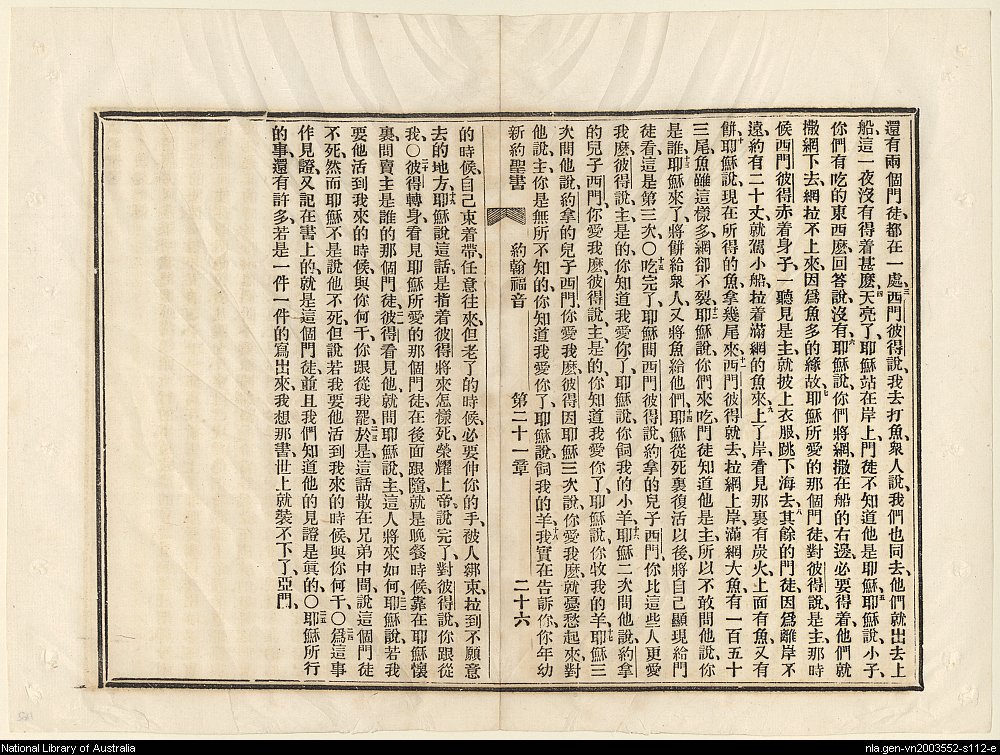 還有兩個門徒、都在一處、三西門彼得說、我去打魚、衆人說、我們也同去、他們就出去上
船、這一夜沒有得着甚麽、四天亮了、耶穌站在岸上、門徒不知道他是耶穌、五耶穌說、小子、
你們有吃的東西麽、回答說、沒有、六耶穌說、你們將網撒在船的右邊、必要得着、他們就
撒網下去、網拉不上來、因爲魚多的緣故、七耶穌所愛的那個門徒、對彼得說、是主、那時
候西門彼得赤着身子、一聽見是主、就披上衣服、跳下海去、八其餘的門徒、因爲離岸不
遠、約有二十丈、就駕小船、拉着滿網的魚來、九上了岸、看見那裏有炭火、上面有魚、又有
餅、十耶穌說、現在所得的魚、拿幾尾來、十一西門彼得就去拉網上岸、滿網大魚、有一百五十
三尾、魚雖這樣多、網卻不裂、十二耶穌說、你們來吃、門徒知道他是主、所以不敢問他說、你
是誰、十三耶穌來了、將餅給衆人、又將魚給他們、十四耶穌從死裏復活以後、將自己顯現給門
徒看、這是第三次、〇十五吃完了、耶穌問西門彼得說、約拿的兒子西門、你比這些人更愛
我麽、彼得說、主是的、你知道我愛你了、耶穌說、你飼我的小羊、十六耶穌二次問他說、約拿
的兒子西門、你愛我麽、彼得說、主是的、你知道我愛你了、耶穌說、你牧我的羊、十七耶穌三
次問他說、約拿的兒子西門、你愛我麽、彼得因耶穌三次說、你愛我麽、就憂愁起來、對
他說、主你是無所不知的、你知道我愛你了、耶穌說、飼我的羊、十八我實在告訴你、你年幼
新約聖書 約翰福音 第二十一章 二十六
的時候、自己束着帶、任意往來、但老了的時候、必要伸你的手、被人綁束、拉到不願意
去的地方、十九耶穌說這話、是指着彼得將來怎樣死、榮耀上帝、說完了、對彼得說、你跟從
我、〇二十彼得轉身看見耶穌所愛的那個門徒、在後面跟隨、就是晚餐時候、靠在耶穌懷
裏、問賣主是誰的那個門徒、二一彼得看見他、就問耶穌說、主、這人將來如何、二二耶穌說、若我
要他活到我來的時候、與你何干、你跟從我罷、二三於是這話散在兄弟中間、說這個門徒
不死、然而耶穌不是說他不死、但說若我要他活到我來的時候、與你何干、〇二四爲這事
作見證、又記在書上的、就是這個門徒、並且我們知道他的見證是眞的、〇二五耶穌所行
的事、還有許多、若是一件一件的寫出來、我想那書世上就裝不下了、亞門、
National Library of Australia
nla.gen-vn2003552-s112-e